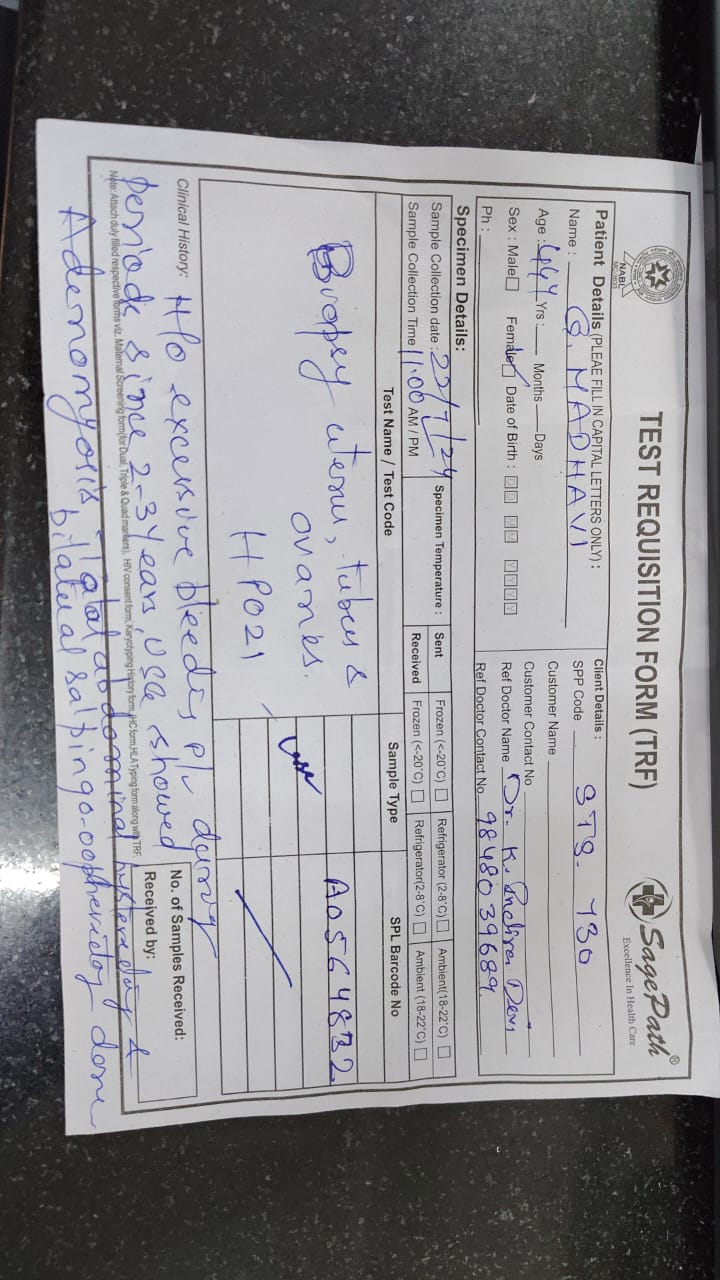 NABL
TEST REQUISITION FORM (TRF)
SagePath®
Excellence In Health Care
Patient Details (PLEAE FILL IN CAPITAL LETTERS ONLY) :
Name : G. MADHAVI
Age : 44Y Yrs : Months Days
Sex : Male Female Date of Birth : DD MM YYYY
Ph :
Client Details :
SPP Code STS. 430
Customer Name
Customer Contact No
Ref Doctor Name Dr. K. Indira Devi
Ref Doctor Contact No 9848039689
Specimen Details:
Sample Collection date : 22/7/24
Sample Collection Time 11:00 AM / PM
Specimen Temperature : Sent Frozen (<-20°C) Refrigerator (2-8°C) Ambient(18-22°C)
Received Frozen (<-20°C) Refrigerator(2-8°C) Ambient (18-22°C)
Test Name / Test Code Sample Type SPL Barcode No
Biopsy uterus, tubes & A0564832
ovaries.
HP021
Clinical History: H/o excessive bleeding p/v during
periods since 2-3 years, USG showed
No. of Samples Received:
Received by:
Note: Attach duly filled respective forms viz. Maternal Screening form(for Dual, Triple & Quad markers), HIV consent form, Karyotyping History form, IHC form, HLA Typing form along with TRF.
Adenomyosis. Total abdominal hysterectomy &
bilateral salpingo-oopherectomy done